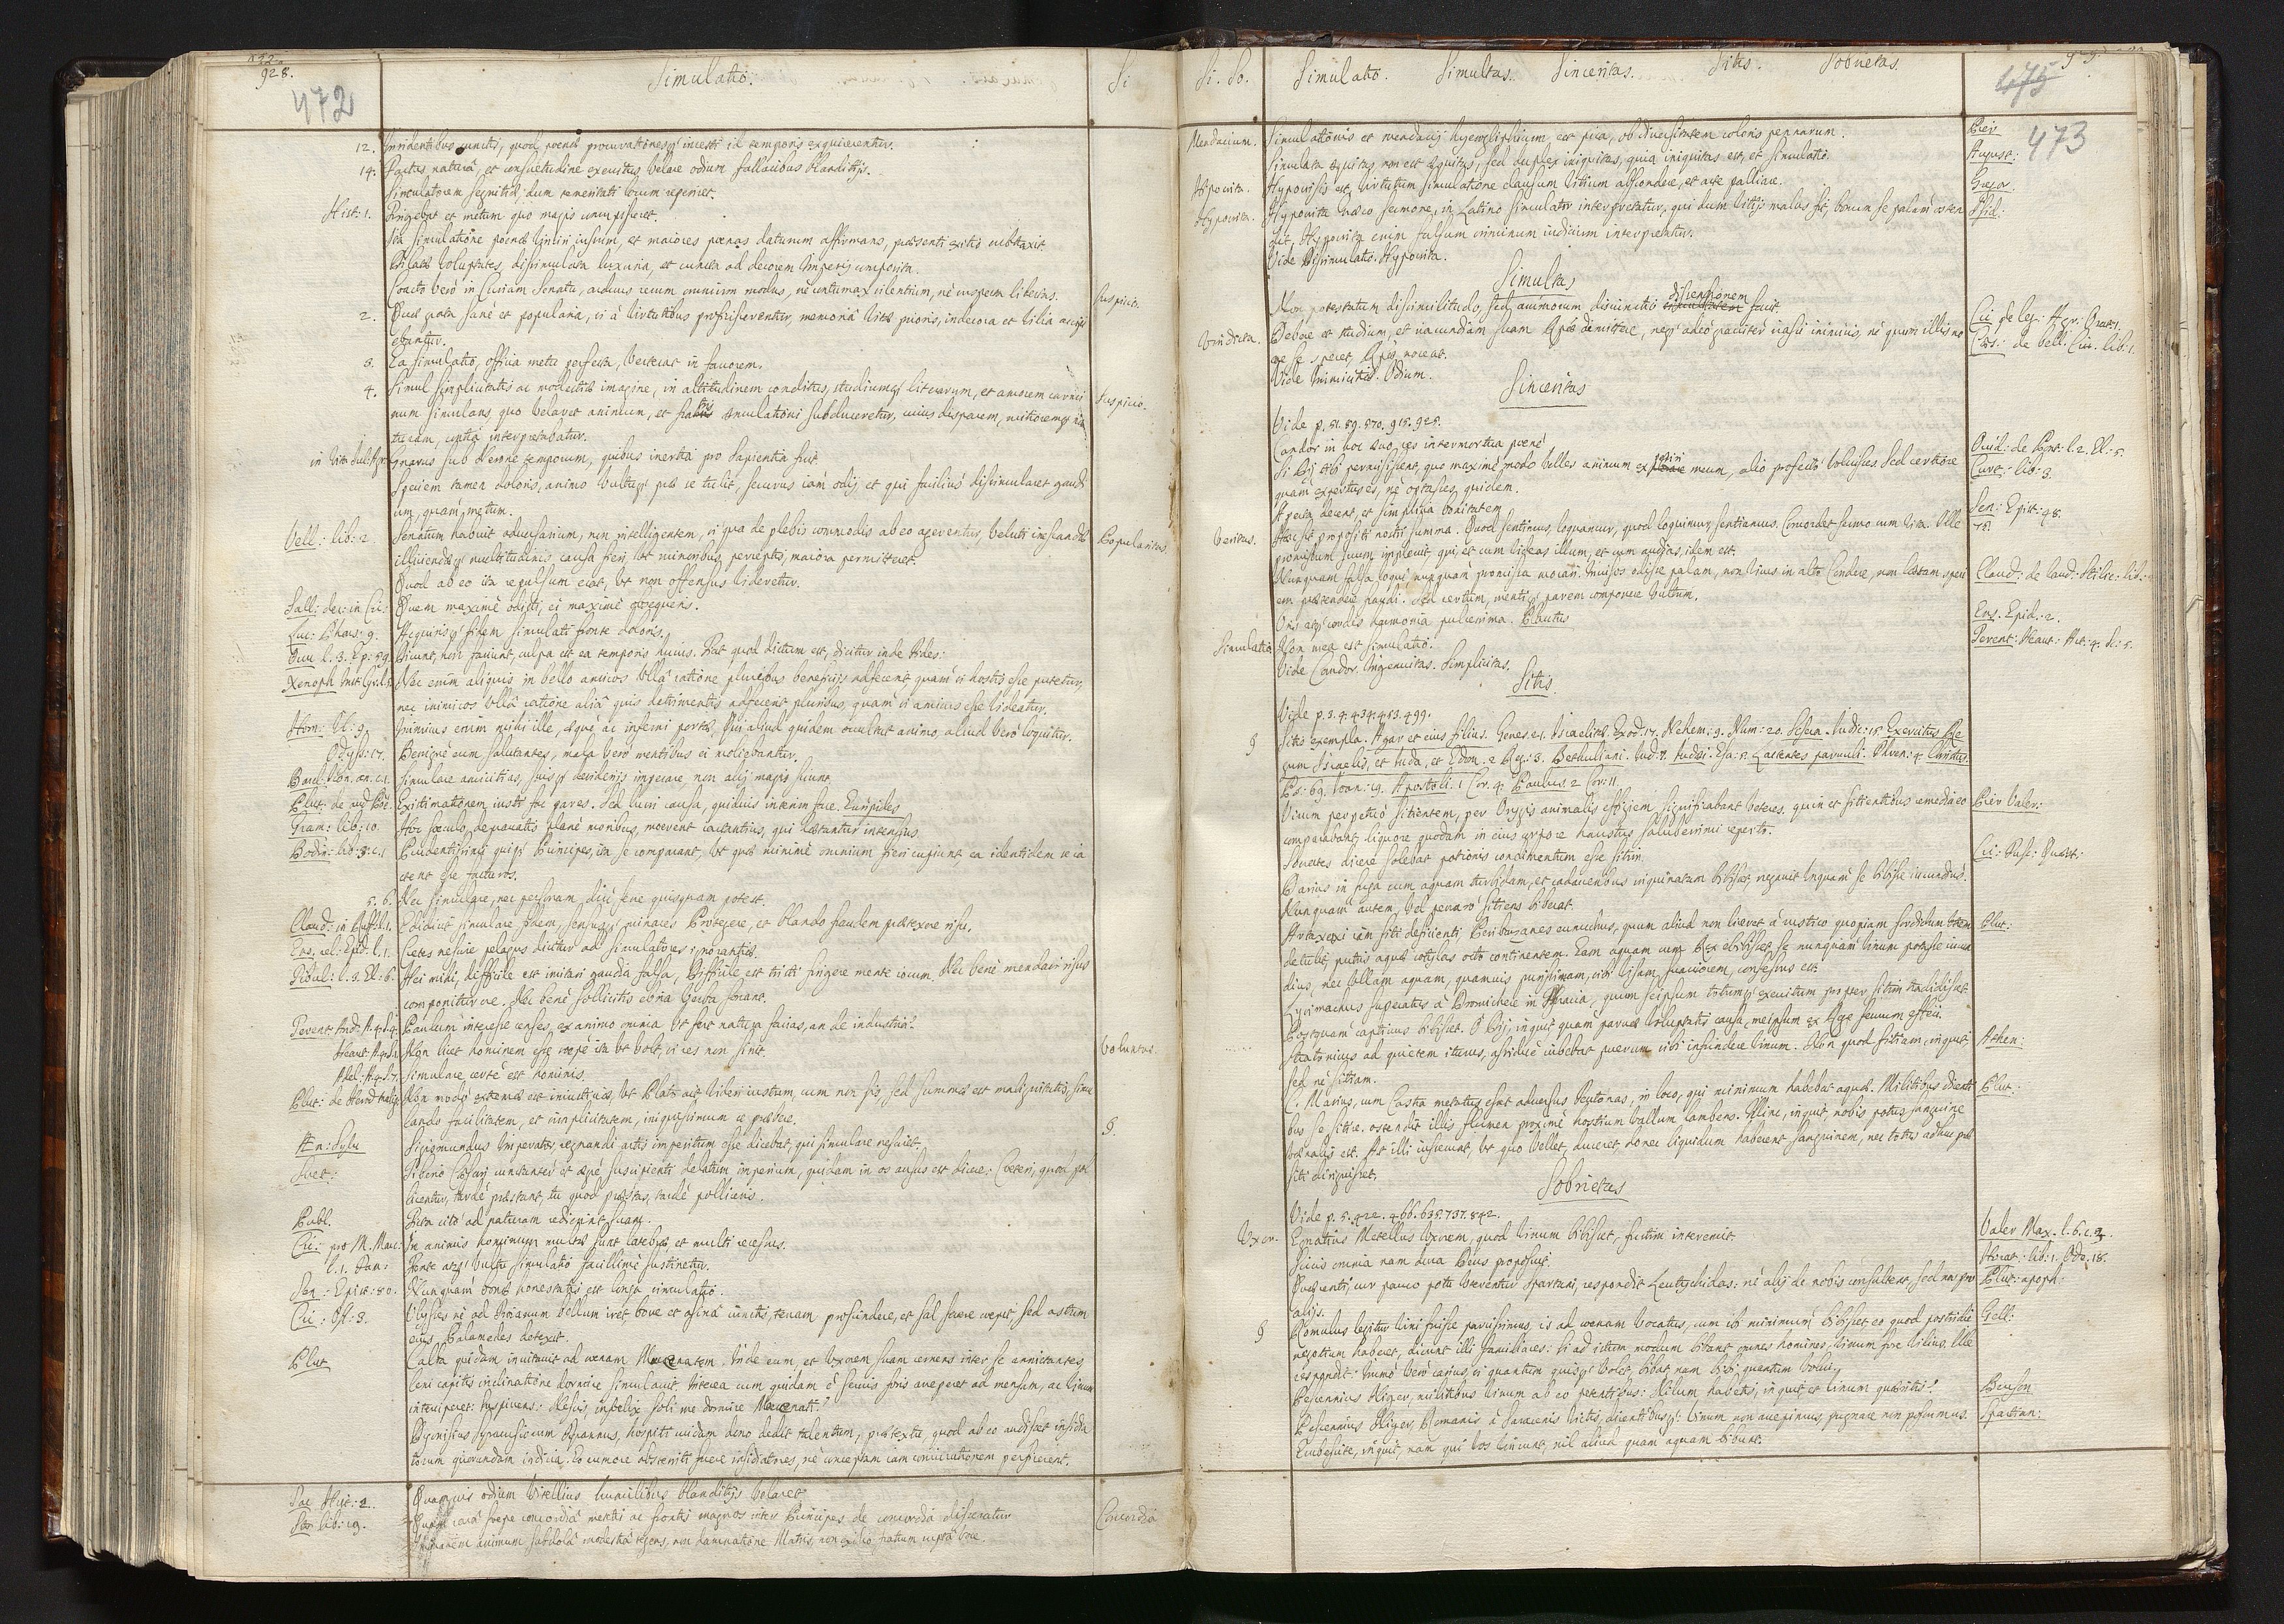 928.
472
Simulatio.
Si
12. Irridentibus cunctis, quod poenae procurationesq́ incesti id temporis exquirerentur.
14. Factus natura, et consuetudine exercitus velare odium fallacibus blanditijs.
Simulatorem segnitiae dum temeritati locum reperiret.
Hist: 1. Augebat et metum quo magis concupisceret.
Ita simulatione poenae vinciri iussum, et maiores poenas daturum affirmans, praesenti exitio subtraxit.
Dilatae voluptates, dissimulata luxuria, et cuncta ad decorem Imperij composita.
Coacto verò in Curiam Senatu, arduus rerum omnium modus, nè contumax silentium, nè suspecta libertas.
Suspicio.
2. Quae grata sanè et popularia, si à virtutibus proficiscerentur, memoria vitae prioris, indecora et vilia accipi
ebantur.
3. Ea simulatio, officia metu perfecta, verterat in favorem.
4. Simul simplicitatis ac modestiae imagine, in altitudinem conditus, studiumq́ literarum, et amorem carmi
num simulans, quo velaret animum, et fratris aemulationi subduceretur, cuius disparem, mitioremq́ na
turam, contra interpretabatur.
Suspicio.
in Vita Iul. Agr: Gnarus sub Nerone temporum, quibus inertia pro Sapientia fuit.
Speciem tamen doloris, animo vultuq́ prae se tulit, securus iam odij, et qui facilius dissimularet gaudi
um, quàm metum.
Vell: lib: 2. Senatum habuit adversarium, non intelligentem, si qua de plebis commodis ab eo agerentur, veluti inescandae
illiciendaeq́ multitudinis causa fieri, ut minoribus perceptis, maiora permitteret.
Popularitas.
Quod ab eo ita repulsum erat, ut non offensus videretur.
Sall: dec: in Cic: Quem maximè odisti, ei maximè obsequeris.
Luc: Phars: 9. Acquirisq́ fidem simulati fronte doloris.
Xenoph Nec enim aliquis in bello amicos ulla ratione pluribus beneficijs adficeret, quam si hostis esse putetur,
nec inimicos ulla ratione alia quis detrimentis adficeret pluribus, quàm si amicus esse videatur.
Hom: Il: 9. Inimicus enim mihi ille, aequè ac inferni portae, Qui aliud quidem occultat animo, aliud verò loquitur.
Odyss: 17. Benignè eum salutantes, mala verò mentibus ei moliebantur.
Simulare amicitias, suisq́ desiderijs imperare, non alij magis sciunt.
Existimationem iusti fac pares. Sed lucri causa, quidvis interim face. Euripides
Gram: lib: 10. Hoc saeculo, depravatis planè moribus, moerent iactantius, qui laetantur intensius.
Bodin: lib: 3. c. 1 Prudentissimi quiq́ Principes, ita se comparant, ut quae minimè omnium fieri cupiunt, ea identidem se ia
ctent esse facturos.
5. 6. Nec simulare, nec personam, diù ferre quisquam potest.
Claud: in Ruff: l. 1. Edidicit simulare fidem, sensusq́ minaces Protegere, et blando fraudem praetexere risu.
Eras. vel: Epid: l. 1. Cretes nescire pelagus dicitur ad simulatores ignorantiae.
Tibul: l. 3. El: 6. Hei mihi, difficile est imitari gaudia falsa, Difficile est tristi fingere mente iocum. Nec benè mendaci risus
componitur ore. Nec benè sollicitis ebria verba sonant.
Terent: And: A. 4. S. 4. Paulum interesse censes, ex animo omnia ut fert natura facias, an de industria?
Heaut: Non licet hominem esse saepè ita ut volt, si res non sinit.
Voluntas.
Adel: A. 4. S. 7. Simulare certè est hominis.
Plut: de Herod: malig: Non modò extremae est iniustitiae, ut Plato ait videri iustum, cum non sis, sed summae est malignitatis, simu
lando facilitatem, et simplicitatem, iniquissimum se praebere.
Aen: Sylv Sigismundus Imperator, regnandi artis imperitum esse dicebat, qui simulare nesciret.
§.
Suet: Tiberio Caesari cunctanter et aegrè suscipienti delatum imperium, quidam in os ausus est dicere: Ceteri, quod pol
licentur, tardè praestant, tu quod praestas, tardè polliceris.
Publ. Ficta citò ad naturam redierint suam.
Cic: pro M. Marc: In animis hominum multae sunt latebrae et multi recessus.
Fronte atq́ vultu simulatio facillimè sustinetur.
Sen: Epist: 80. Nunquam bona honestatis est longa simulatio.
Cic: Off: 3. Ulysses nè ad Troianum bellum iret, bove et asina iunctis, terram proscindere, et sal serere coepit, sed astum
eius Palamedes detexit.
Plut Calba quidam invitavit ad coenam Maecenatem. Inde eum, et uxorem suam cernens inter se annictantes
leni capitis inclinatione dormire simulavit. Interea cum quidam è servis foris accederet ad mensam, ac vinum
intercipere: suspiciens: Nescis infelix soli me dormire Maecenati?
Dionysius Syracusiorum Tyrannus, hospiti cuidam dono dedit talentum, praetextu, quod ab eo audisset insidia
torum quorundam indicia. Eo rumore absterriti fuere insidiatores, nè conceptam iam coniurationem perficerent.
Tac Hist: 2. Quamvis odium Vitellius humilibus blanditijs velaret.
Concordia
Ingratem animum subdola modestia tegens, non damnatione Matris, non exilio fratrum rupta voce.
Si. So.
Simulatio. Simultas. Sinceritas. Sitis. Sobrietas.
475
473
Mendacium. Simulationis et mendacij hyeroglyphicum est pica, ob diversitatem coloris pennarum.
Pier
Simulata aequitas non est aequitas, sed duplex iniquitas, quia iniquitas est, et simulatio.
August:
Hypocrita. Hypocrisis est, virtutum simulatione clausum vitium abscondere, et arte palliare.
Gregor.
Hypocrita. Hypocrita Graeco sermone, in Latino simulator interpretatur, qui dum vitijs malus sit, bonum se palam osten
dit, Hypocrita enim falsum criminum iudicium interpretantur.
Isid:
Vide Dissimulatio. Hypocrita.
Simultas
Non potestatum dissimilitudo, sed animorum disiunctio dissensionem facit.
Cic: de leg: Agr: Orat: 1.
Vindicta. Debere et studium, et iracundiam suam Reipub: dimittere, neq́ adeò graviter irasci inimicis, nè quum illis no
cere se speret, Reipub: noceat.
Caes: de bell: Civ: lib: 1.
Vide Inimicitiae. Odium.
Sinceritas
Vide p. 51. 89. 870. 915. 925.
Candor in hoc aevo, res intermortua poenè
Ovid: de Pont: l. 2. El: 5.
Si Dij tibi permisissent, quo maximè modo velles animum experiri meum, alio profectò voluisses sed certiore
quàm expertus es, nè optasses quidem.
Curt: lib: 3.
Aperta decent, et simplicia bonitatem
Sen: Epist: 48.
Veritas. Haec sit propositi nostri summa. Quod sentimus, loquamur, quod loquimur, sentiamus. Concordet sermo cum vita. Ille
promissum suum implevit, qui, et cum videas illum, et cum audias, idem est.
75.
Nunquam falsa loqui, nunquam promissa morari. Invisos odisse palam, non virus in alto Condere, non laetam speci
em praetendere fraudi. Sed certum, mentiq́ parem componere vultum.
Claud: de laud: Stilic: lib:
Oris atq́ cordis harmonia pulcerrima. Plautus
Eras. Epid: 2.
Simulatio Non mea est simulatio.
Terent: Heaut: Act: 4. S: 5.
Vide Candor. Ingenuitas. Simplicitas.
Sitis
Vide p. 3. 4. 434. 453. 499.
§ Sitis exempla. Agar et eius filius. Genes. 21. Israelitae. Exod: 17. Nehem: 9. Num: 20. Sisera. Iudic: 15. Exercitus Re
gum Israelis, et Iuda, et Edom. 2 Reg: 3. Bethuliani. Iud: 7. Iudaei. Esa: 5. Lactentes parvuli. Thren: 4 Christus.
Ps: 69. Ioan: 19. Apostoli. 1 Cor. 4. Paulus. 2 Cor: 11.
Virum perpetuò sitientem, per Orygis animalis effigiem significabant veteres, quin et sitientibus remedia eo
comparabant, liquore quodam in eius corpore haustus saluberrimi reperto.
Pier Valer:
Socrates dicere solebat potionis condimentum esse sitim.
Cic: Tusc: Quaest:
Darius in fuga cum aquam turbidam, et cadaveribus inquinatam bibisset, negavit unquam se bibisse iucundius.
Nunquam autem, vel perrarò sitiens biberat.
Artaxerxi iam siti deficienti Peribarzanes eunuchus, quum aliud non liceret à rustico quopiam sordidum utrem
detulit, putris aquae cotylas octo continentem. Eam aquam cum Rex ebibisset, se nunquam vinum potasse iucun
dius, nec ullam aquam, quamvis purissimam, sibi visam suaviorem, confessus est.
Plut:
Lysimachus superatus à Dromichete in Thracia, quum seipsum totumq́ exercitum propter sitim tradidisset
Postquam captivus bibisset. O Dij, inquit, quàm parvae voluptatis causa, meipsum ex Rege servum effeci.
Stratonicus ad quietem iturus, assiduè iubebat puerum sibi infundere vinum. Non quod sitiam, inquit,
sed nè sitiam.
Athen:
C. Marius, cum Castra metatus esset adversus Teutonas, in loco, qui minimum habebat aquae. Militibus dicenti
bus se sitire, ostendit illis flumen proximè hostium vallum lambens. Illinc, inquit, nobis potus sanguine
venalis est. At illi iusserunt, ut quo vellet, duceret, donec liquidum haberent sanguinem, nec totus adhuc prae
siti diriguisset.
Plut:
Sobrietas
Vide p. 5. 422. 466. 635. 737. 842.
Uxor. Egnatius Metellus Uxorem, quod vinum bibisset, fustim interemit.
Valer Max. l. 6. c. 3.
Siccis omnia nam dura Deus proposuit.
Horat: lib: 1. Ode. 18.
Quaerenti, cur parco potu uterentur Spartani, respondit Leutychidas: nè alij de nobis consultent, sed nos pro
alijs.
Plut: apoph:
§ Romulus legitur vini fuisse parcissimus, is ad coenam vocatus, cum ibi minimum bibisset eo quod postridiè
negotium haberet, dicunt illi familiares: Si ad istum modum bibant omnes homines, vinum fore vilius. Ille
respondit: Immò verò carius, si quantum quisq́ volet, bibat, nam bibi quantum volui.
Gell:
Pescennius Niger, militibus vinum ab eo petentibus: Nilum habetis, inquit, et vinum quaeritis?
Pescennius Niger, Romanis à Saracenis victis, dicentibusq́: Vinum non accepimus, pugnare non possumus.
Spartian:
Erubescite, inquit, nam qui vos vincunt, nil aliud quam aquam bibunt.